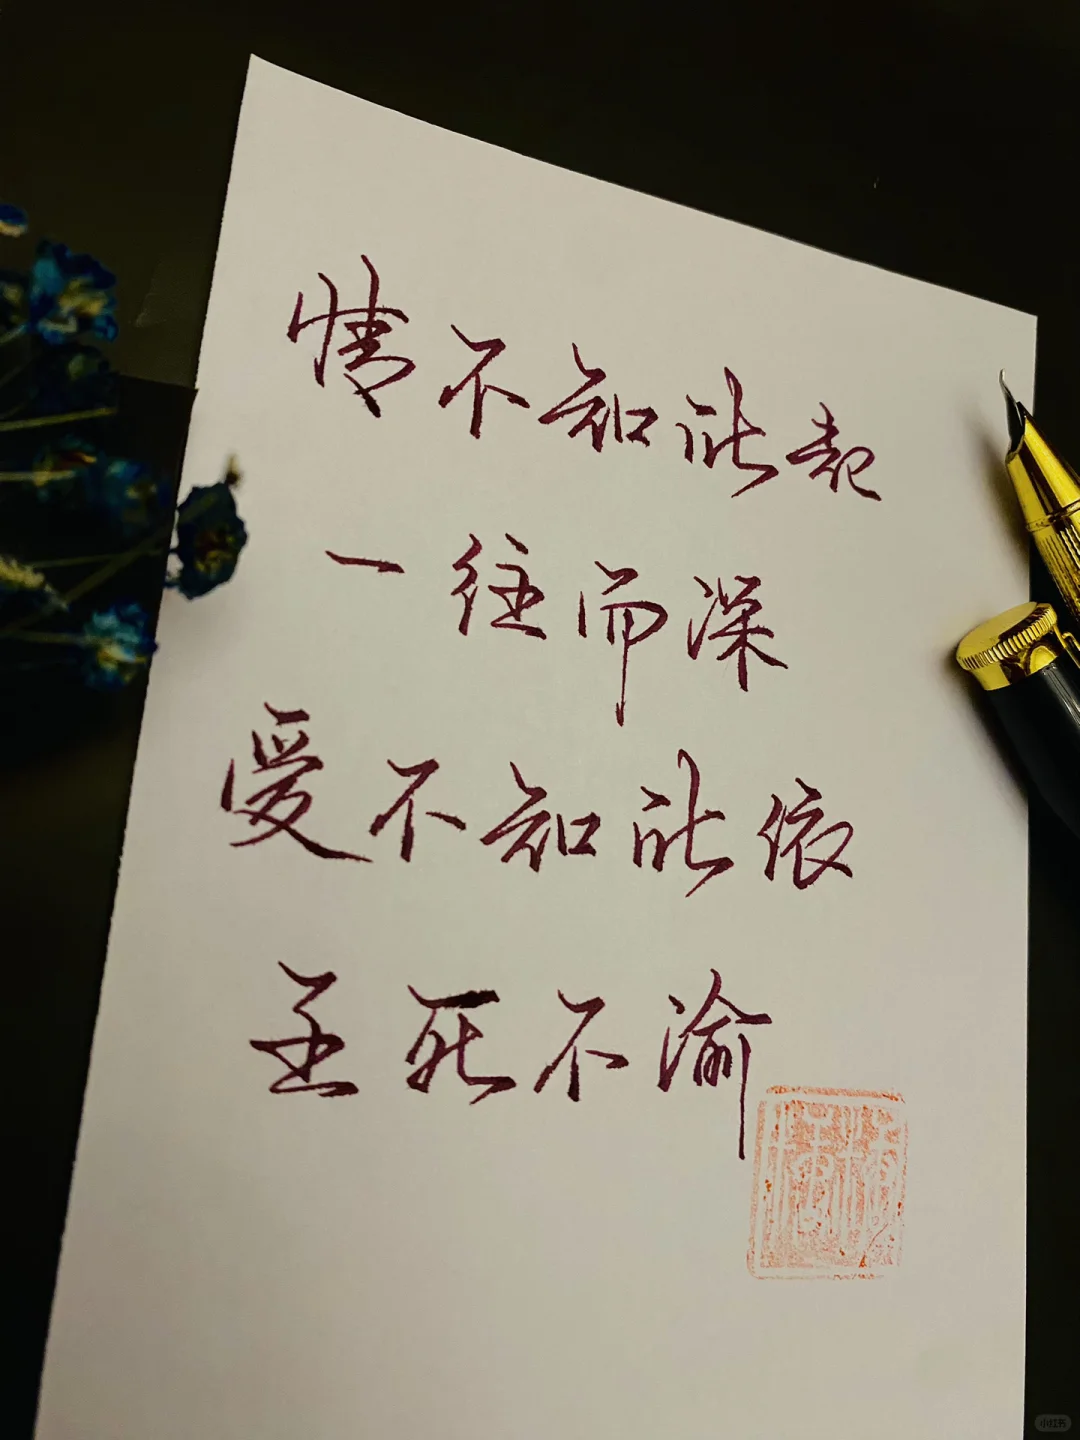 情不知所起
一往而深
爱不知所依
至死不渝
小红书